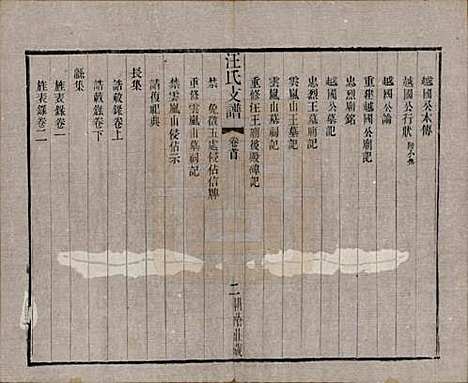 越國公本傳
越國公行狀
越國公論
重建越國公廟記
忠烈廟銘
越國公墓記
忠烈王墓廟記
雲嵐山王墓記
雲嵐山墓祠記
重修汪王廟後殿記
汪氏支譜
卷首
二
重修雲嵐山墓祠記
禁雲嵐山侵佔示
請復祀典
長集
誥敕錄卷上
誥敕錄卷下
旌表錄卷一
旌表錄卷二